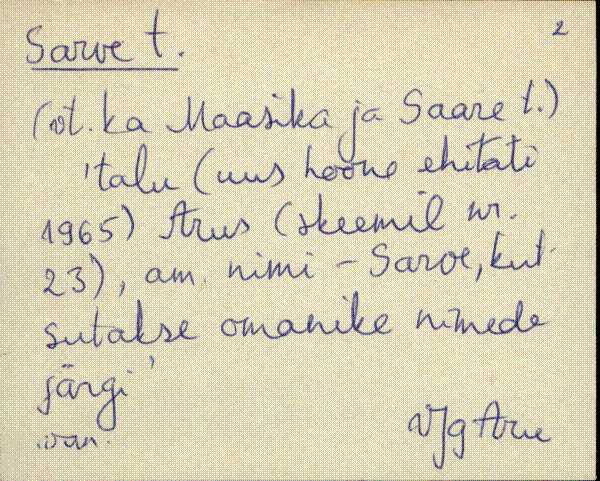 2
Sarve t.
(vt. ka Maasika ja Saare t.)
'talu (uus hoone ehitati
1965) Arus (skeemil nr.
23), am. nimi - Sarve, kut-
sutakse omanike nimede
järgi'
VJg Aru